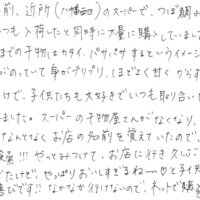 前、近所(八幡西区)のスーパーで、つぼ鯛み
いつも入荷したと同時に大量に購入していまし
までの干物はカタイ、パサパサするというイメージ
がのっていて身がプリプリ、ほどよく甘くからす
けで、子供たちも大好きでいつも取り合い
いました。スーパーの干物屋さんがなくなり、
なんとなくお店の名前を覚えていたので、
検索!!! やっとみつけて、お店に行き久しぶ
たけど、やっぱりおいしすぎるね〜♡と子供
喜びです!! なかなか行けないので、ネットで購